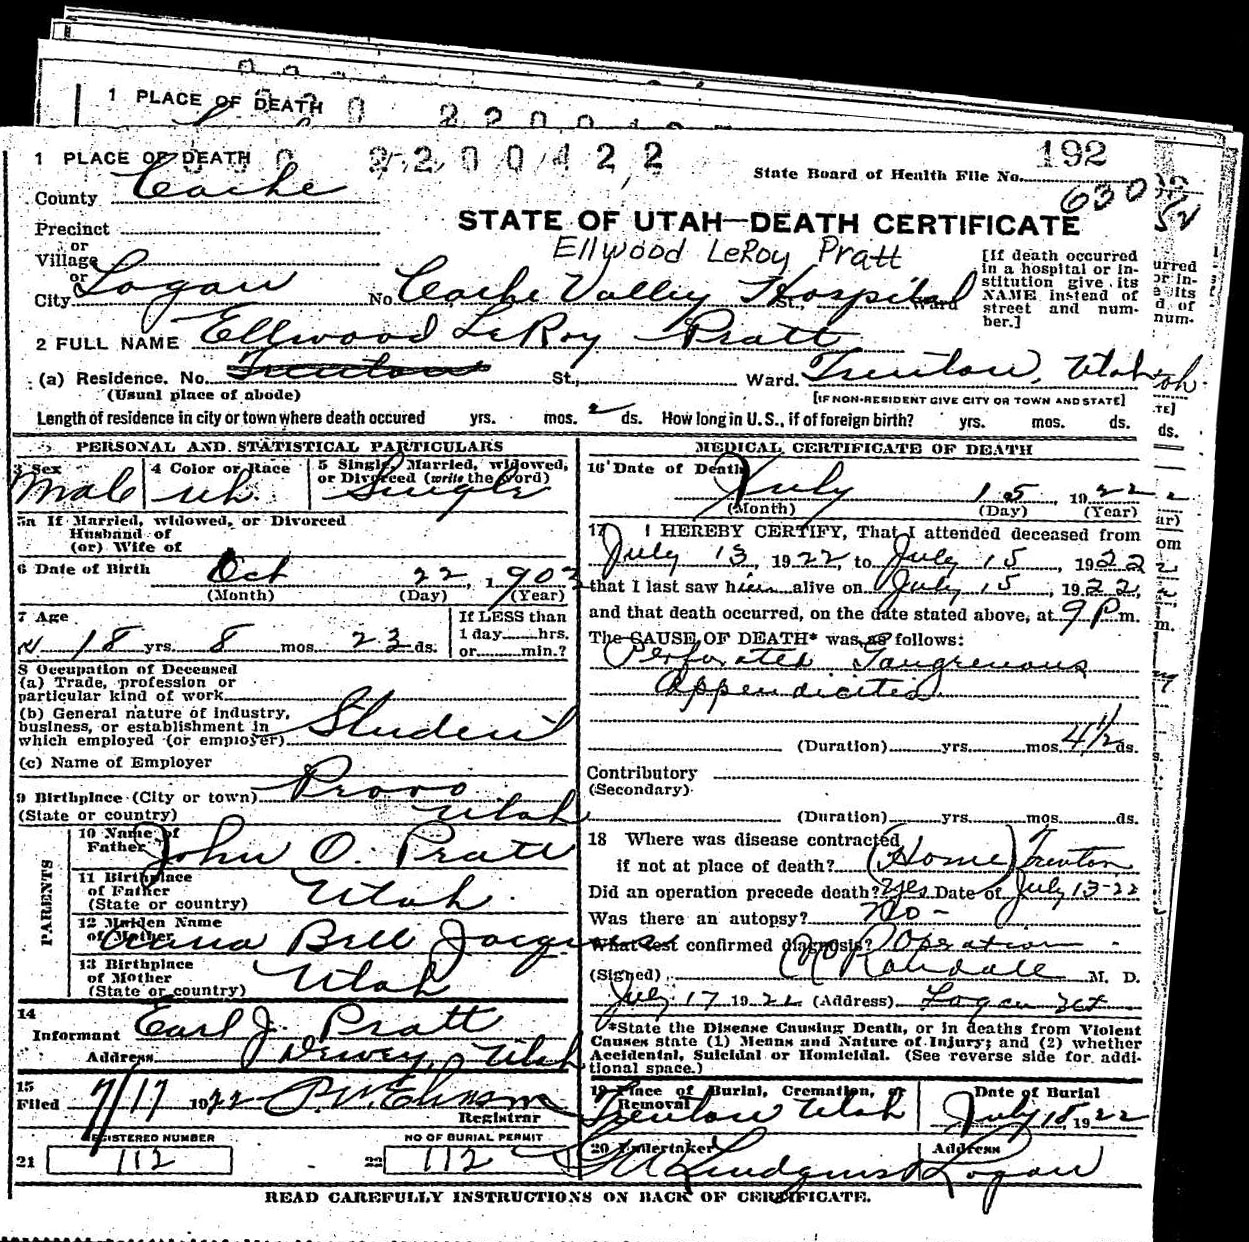 1 PLACE OF DEATH
1 PLACE OF DEATH
2200422
192
State Board of Health File No. 630
County Cache
STATE OF UTAH—DEATH CERTIFICATE
Precinct
or
Village
Ellwood LeRoy Pratt
or
City Logan No. Cache Valley Hospital St., Ward
[If death occurred
in a hospital or in-
stitution give its
NAME instead of
street and num-
ber.]
2 FULL NAME Ellwood LeRoy Pratt
(a) Residence. No. Trenton St., Ward. Trenton, Utah
(Usual place of abode)
[IF NON-RESIDENT GIVE CITY OR TOWN AND STATE]
Length of residence in city or town where death occured yrs. mos. 2 ds. How long in U.S., if of foreign birth? yrs. mos. ds.
PERSONAL AND STATISTICAL PARTICULARS
3 Sex
Male
4 Color or Race
Wh.
5 Single, Married, widowed,
or Divorced (write the word)
Single
5a If Married, widowed, or Divorced
Husband of
(or) Wife of
6 Date of Birth Oct 22, 1903
(Month) (Day) (Year)
7 Age
18 yrs. 8 mos. 23 ds.
If LESS than
1 day hrs.
or min.?
8 Occupation of Deceased
(a) Trade, profession or
particular kind of work
(b) General nature of industry,
business, or establishment in
which employed (or employer) Student
(c) Name of Employer
9 Birthplace (City or town) Provo
(State or country) Utah
PARENTS
10 Name of
Father John O. Pratt
11 Birthplace
of Father
(State or country) Utah.
12 Maiden Name
of Mother Bell
13 Birthplace
of Mother
(State or country) Utah
14
Informant Earl J. Pratt
Address Dewey, Utah
15
Filed 7/17 1922
Registrar
REGISTERED NUMBER
21 112
NO OF BURIAL PERMIT
22 112
MEDICAL CERTIFICATE OF DEATH
16 Date of Death
July 15, 1922
(Month) (Day) (Year)
17 I HEREBY CERTIFY, That I attended deceased from
July 13, 1922, to July 15, 1922
that I last saw him alive on July 15, 1922,
and that death occurred, on the date stated above, at 9 P m.
The CAUSE OF DEATH* was as follows:
Perforated Gangrenous
Appendicites
(Duration) yrs. mos. 4 1/2 ds.
Contributory
(Secondary)
(Duration) yrs. mos. ds.
18 Where was disease contracted
if not at place of death? (Home) Trenton
Did an operation precede death? Yes Date of July 13-22
Was there an autopsy? No -
What test confirmed diagnosis? Operation
(Signed) Randall M. D.
July 17 1922 (Address) Logan Ut
*State the Disease Causing Death, or in deaths from Violent
Causes state (1) Means and Nature of Injury; and (2) whether
Accidental, Suicidal or Homicidal. (See reverse side for addi-
tional space.)
19 Place of Burial, Cremation, or
Removal
Trenton Utah
Date of Burial
July 18, 1922
20 Undertaker
Lindquist
Address
Logan
READ CAREFULLY INSTRUCTIONS ON BACK OF CERTIFICATE.